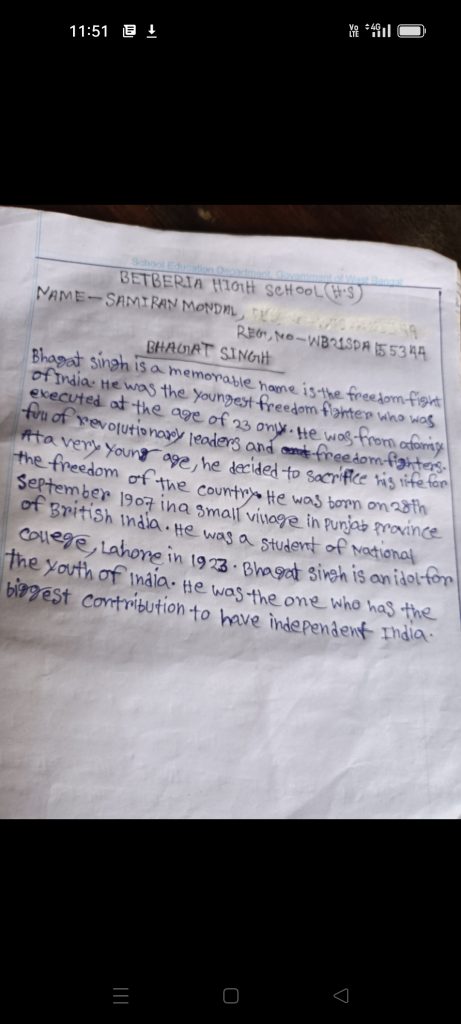 11:51
Vo LTE 4G
School Education Department, Government of West Bengal
BETBERIA HIGH SCHOOL (H.S)
NAME - SAMIRAN MONDAL,
REG, NO - WB21SDA 155344
BHAGAT SINGH
Bhagat singh is a memorable name is the freedom-fight
of India. He was the youngest freedom fighter who was
executed at the age of 23 only. He was from a family
full of revolutionary leaders and freedom-fighters.
At a very young age, he decided to sacrifice his life for
the freedom of the country. He was born on 28th
September 1907 in a small village in punjab province
of British india. He was a student of National
college, Lahore in 1923. Bhagat Singh is an idol for
the youth of India. He was the one who has the
biggest contribution to have independent India.